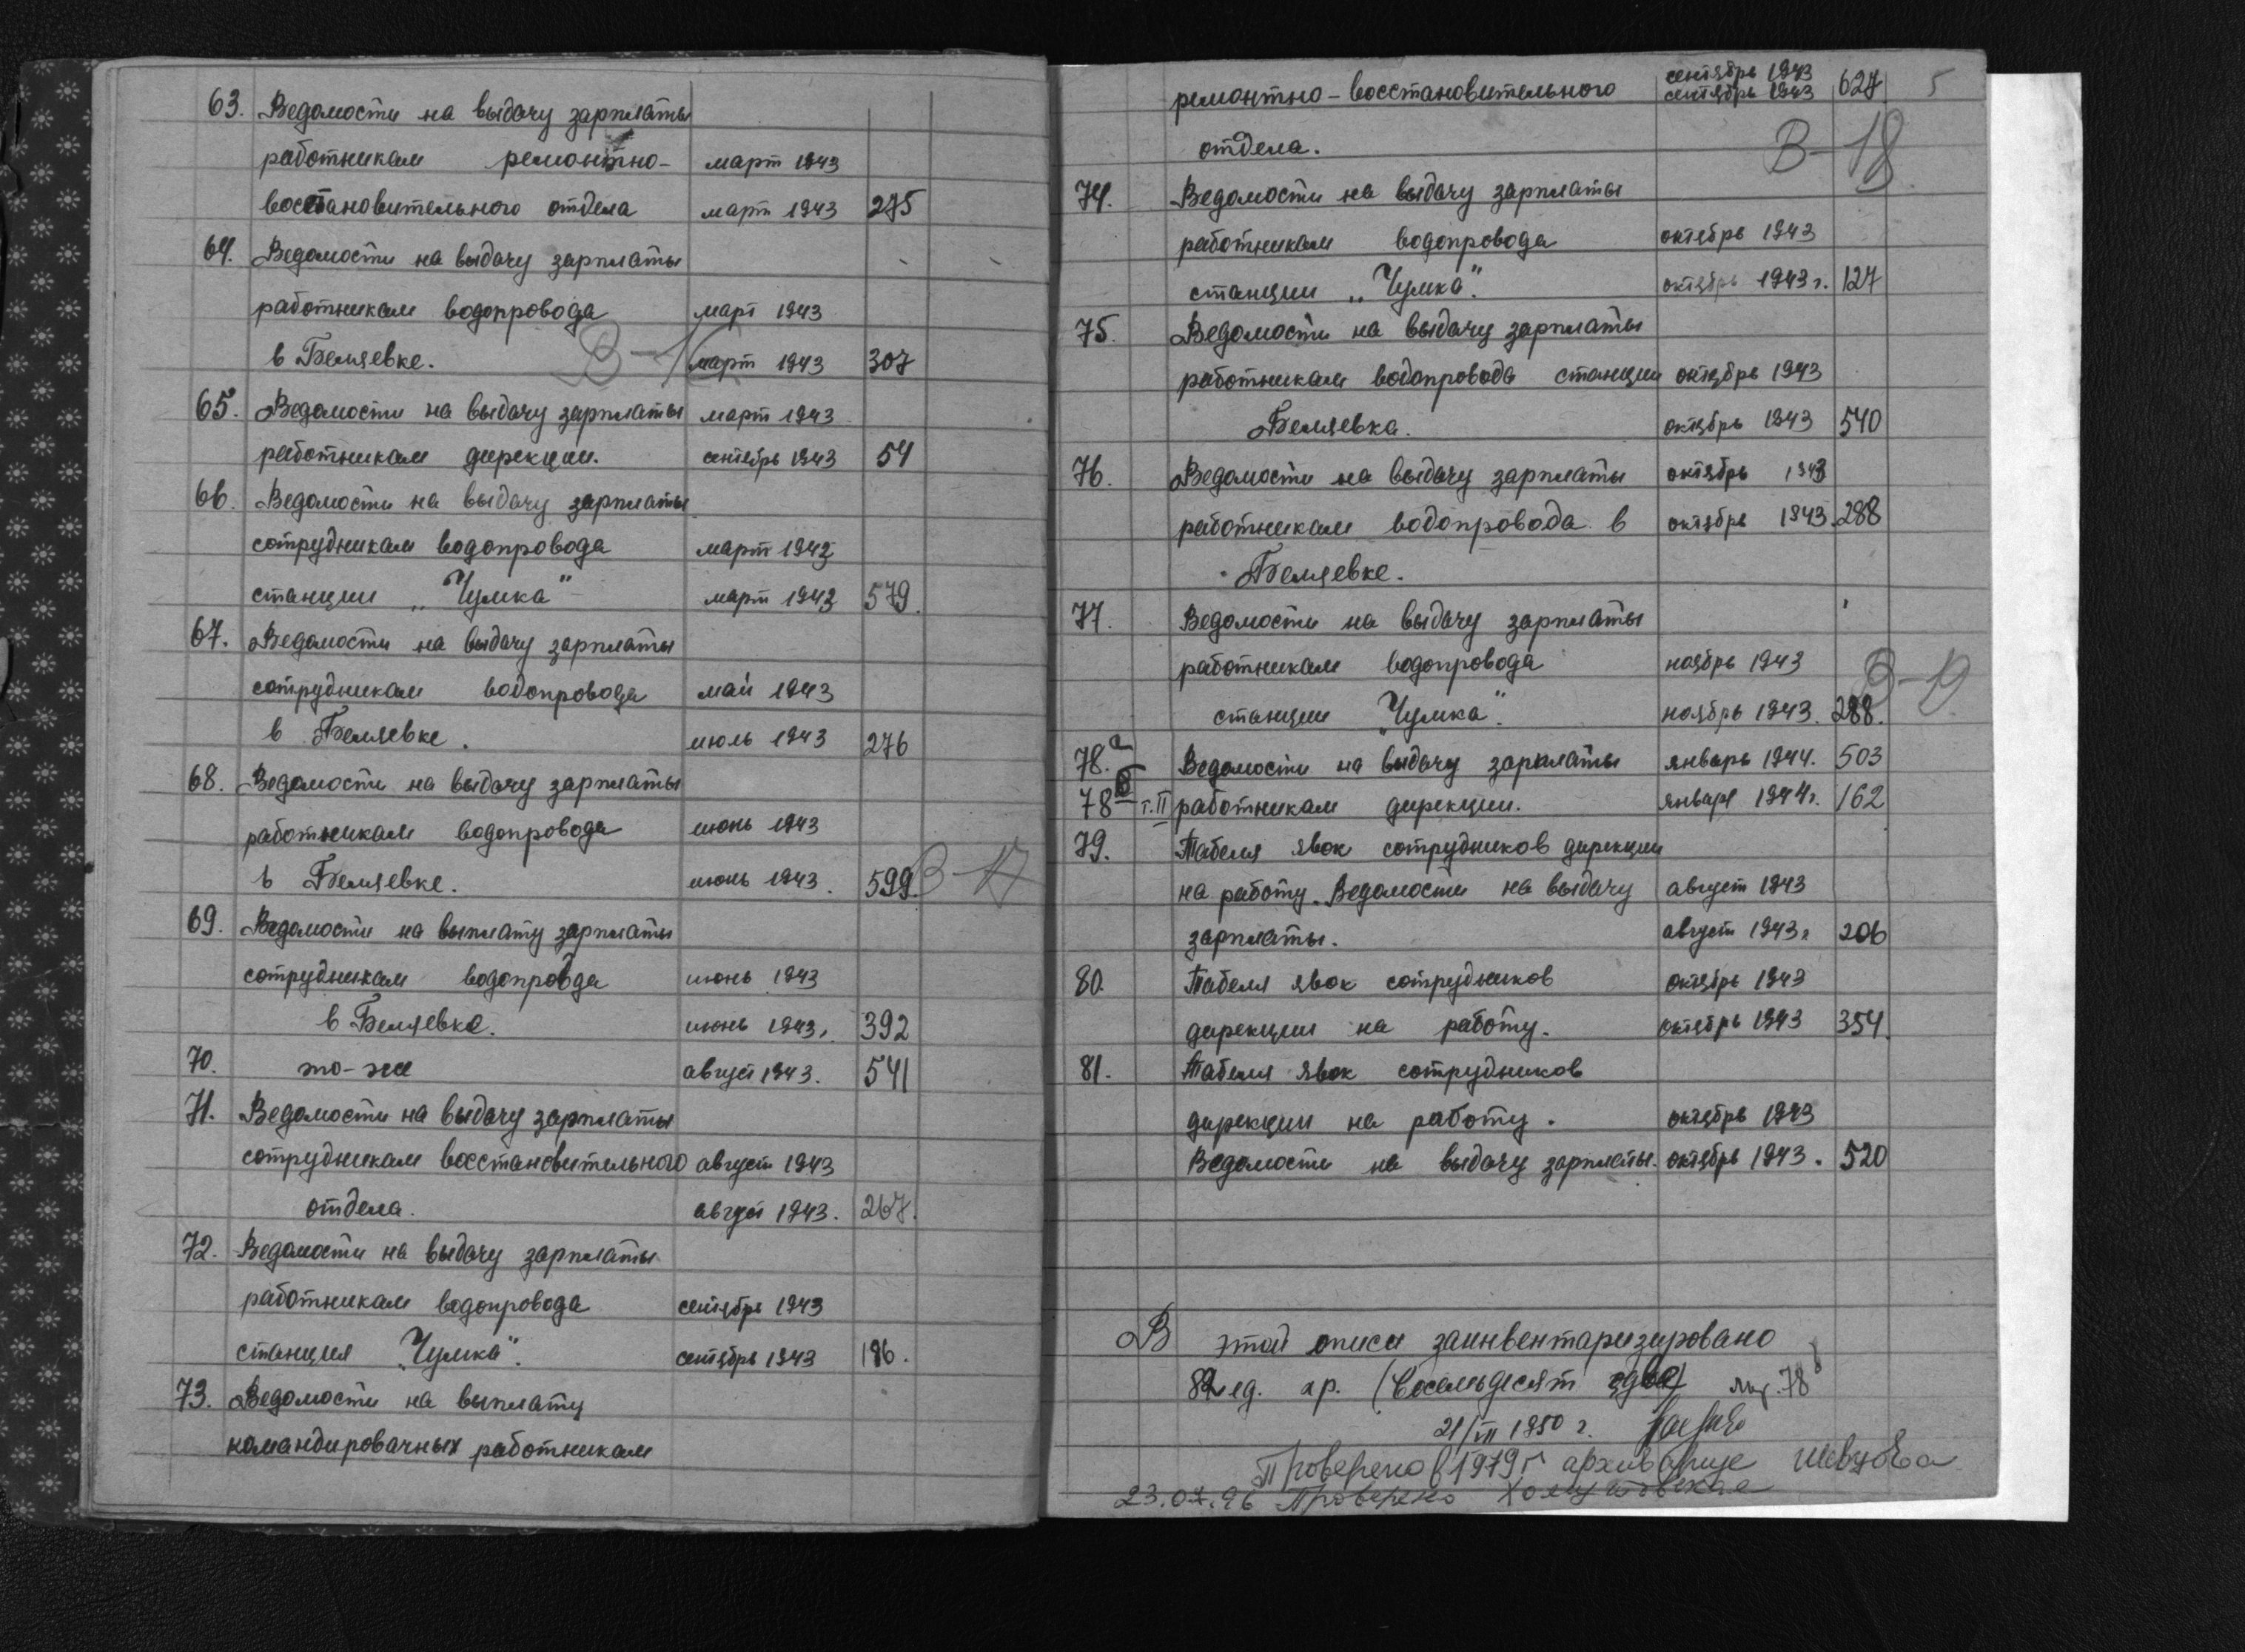 63. Ведомости на выдачу зарплаты
работникам ремонтно- март 1943
восстановительного отдела март 1943 275
64. Ведомости на выдачу зарплаты
работникам водопровода март 1943
в Беляевке. март 1943 307
65. Ведомости на выдачу зарплаты март 1943
работникам дирекции. сентябрь 1943 54
66. Ведомости на выдачу зарплаты
сотрудникам водопровода март 1943
станции „Чумка" март 1943 579.
67. Ведомости на выдачу зарплаты
сотрудникам водопровода май 1943
в Беляевке. июль 1943 276
68. Ведомости на выдачу зарплаты
работникам водопровода июнь 1943
в Беляевке. июнь 1943. 599. В-17
69. Ведомости на выплату зарплаты
сотрудникам водопровда июнь 1943
в Беляевке. июнь 1943. 392
70. то-же август 1943. 541
71. Ведомости на выдачу зарплаты
сотрудникам восстановительного август 1943
отдела. август 1943. 267.
72. Ведомости на выдачу зарплаты
работникам водопровода сентябрь 1943
станция „Чумка". сентябрь 1943 186.
73. Ведомости на выплату
командировачных работникам
5
сентябрь 1943
ремонтно-восстановительного сентябрь 1943 627
отдела. В-18
74. Ведомости на выдачу зарплаты
работникам водопровода октябрь 1943
станции „Чумка". октябрь 1943 г. 127
75. Ведомости на выдачу зарплаты
работникам водопровода станции октябрь 1943
Беляевка. октябрь 1943 540
76. Ведомости на выдачу зарплаты октябрь 1943
работникам водопровода в октябрь 1943. 288
Беляевке.
77. Ведомости на выдачу зарплаты
работникам водопровода ноябрь 1943 В-19
станции „Чумка". ноябрь 1943. 288.
78.а Ведомости на выдачу зарплаты январь 1944. 503
78 б т.II работникам дирекции. январь 1944г. 162
79. Табеля явок сотрудников дирекции
на работу. Ведомости на выдачу август 1943
зарплаты. август 1943г 206
80. Табеля явок сотрудников октябрь 1943
дирекции на работу. октябрь 1943 354.
81. Табеля явок сотрудников
дирекции на работу. октябрь 1943
Ведомости на выдачу зарплаты. октябрь 1943. 520
В этой описи заинвентаризировано
82 ед. хр. (Восемьдесят две) 78
21/VII 1950 г.
Проверено в 1979 г
23.07.96 Проверено